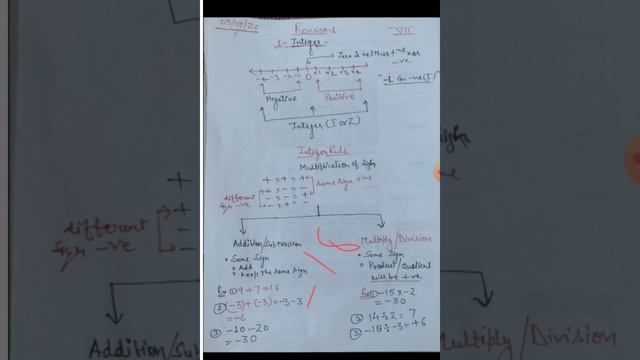 03/09/20
Revision-1
VII
1- Integer -
Zero is neither +ve nor -ve
-4 -3 -2 -1 0 +1 +2 +3 +4
Negative Positive
Integer (I or Z)
Integer Rule
Multiplication of sign
+ × + = +
+ × - = -
- × - = +
- × + = -
Same sign +ve
different
sign -ve
Addition/Subtraction
• Same Sign
• Add
• Keep the same sign
Ex ① 9 + 7 = 16
② (-3) + (-3) = -3 -3
= -6
③ -10 -20
= -30
Multiply/Division
• Same Sign
• Product/Quotient
will be +ve
Ex ① -15 × -2
= -30
③ 14 ÷ 2 = 7
③ -18 ÷ -3 = +6
different
sign -ve
+
+
-
-
Addition/Sub
Multiply/Division